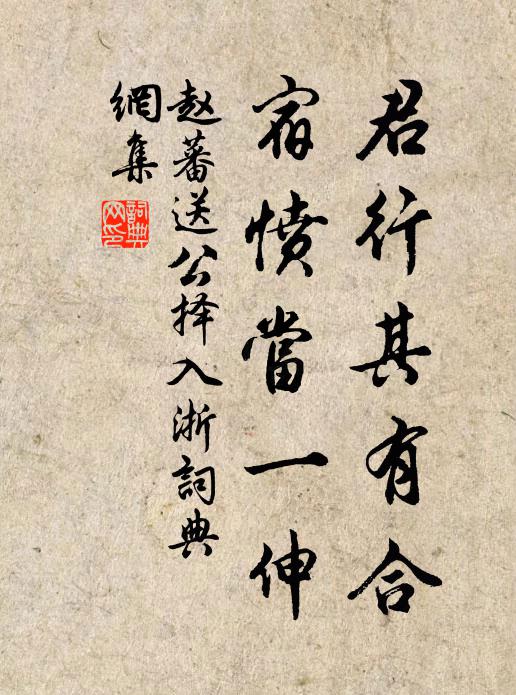 君行其有合
宿憤當一伸
赵蕃送公择入浙詞典
網集
詞典
网印